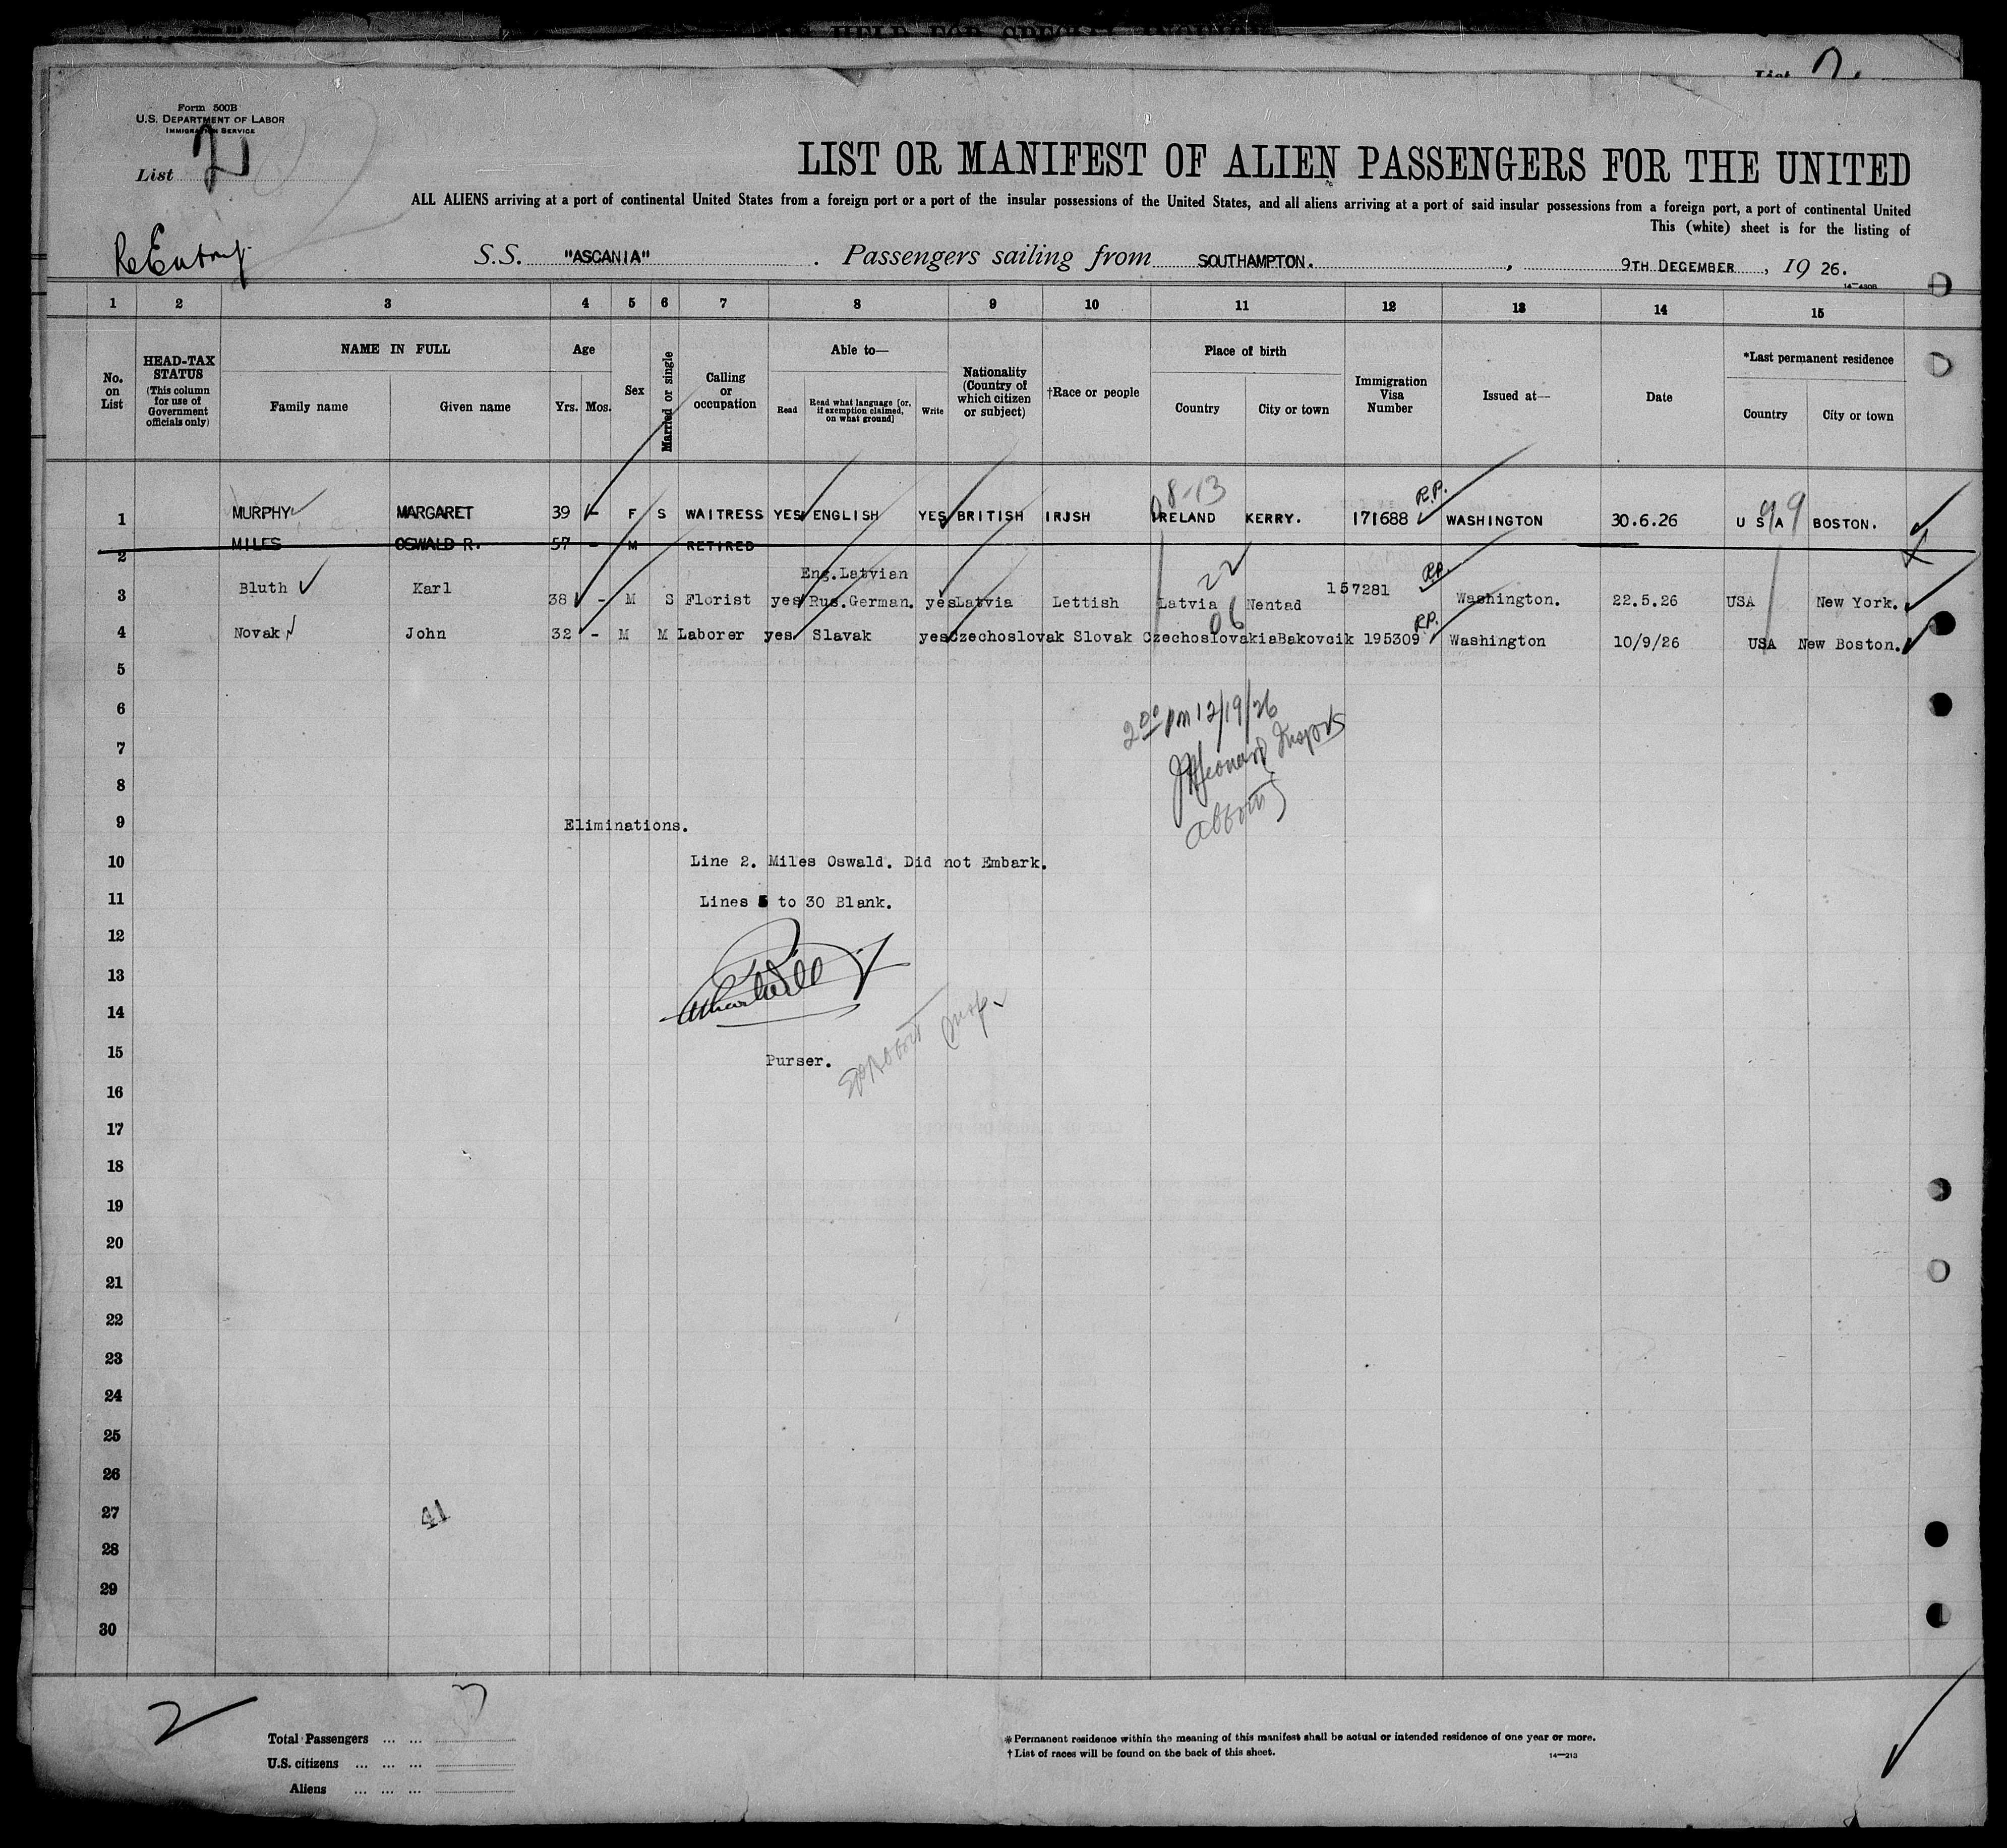 Form 500B
U.S. DEPARTMENT OF LABOR
IMMIGRATION SERVICE
List 2
List 2
LIST OR MANIFEST OF ALIEN PASSENGERS FOR THE UNITED
ALL ALIENS arriving at a port of continental United States from a foreign port or a port of the insular possessions of the United States, and all aliens arriving at a port of said insular possessions from a foreign port, a port of continental United
This (white) sheet is for the listing of
ReEntry
S.S. "ASCANIA" . Passengers sailing from SOUTHAMPTON. , 9TH DECEMBER , 19 26.
1 2 3 4 5 6 7 8 9 10 11 12 13 14 15
No. on List
HEAD-TAX STATUS (This column for use of Government officials only)
NAME IN FULL
Family name Given name
Age
Yrs. Mos.
Sex
Married or single
Calling or occupation
Able to—
Read
Read what language [or, if exemption claimed, on what ground]
Write
Nationality (Country of which citizen or subject)
†Race or people
Place of birth
Country City or town
Immigration Visa Number
Issued at—
Date
*Last permanent residence
Country City or town
1 MURPHY MARGARET 39 - F S WAITRESS YES ENGLISH YES BRITISH IRISH IRELAND KERRY. 171688 R.P. WASHINGTON 30.6.26 U S A 99 BOSTON.
2 MILES OSWALD R. 57 - M RETIRED
3 Bluth Karl 38 - M S Florist yes Eng.Latvian Rus.German. yes Latvia Lettish Latvia Nentad 157281 R.P. Washington. 22.5.26 USA New York.
4 Novak John 32 - M M Laborer yes Slavak yes Czechoslovak Slovak Czechoslovakia Bakovcik 195309 R.P. Washington 10/9/26 USA New Boston.
5
6
2 00 pm 12/19/26
7
8
9 Eliminations.
10 Line 2. Miles Oswald. Did not Embark.
11 Lines 5 to 30 Blank.
12
13
14
15 Purser.
16
17
18
19
20
21
22
23
24
25
26
27 41
28
29
30
2
Total Passengers ... ... 3
U.S. citizens ... ... ...
Aliens ... ... ...
* Permanent residence within the meaning of this manifest shall be actual or intended residence of one year or more.
† List of races will be found on the back of this sheet.
14—213